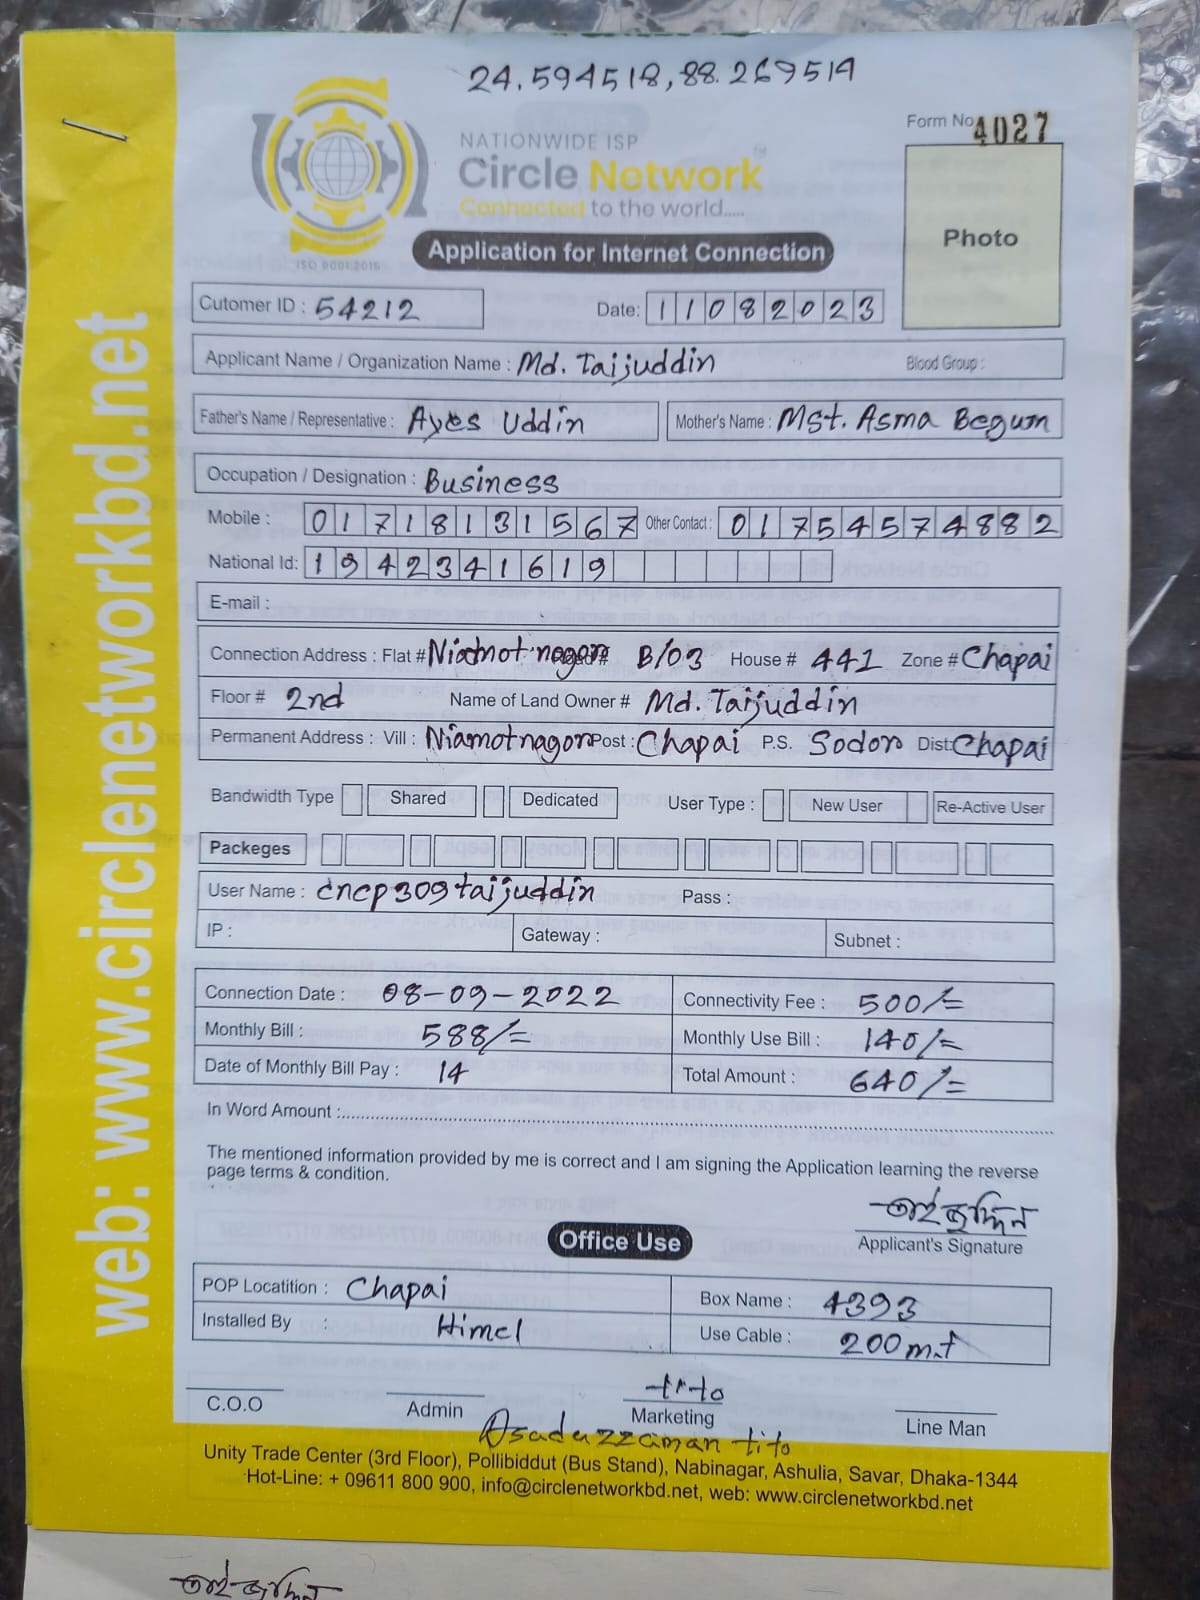 24.594518,88.269514
Form No 4027
NATIONWIDE ISP
Circle Network
Connected to the world.....
ISO 9001:2015
Photo
Application for Internet Connection
Cutomer ID : 54212 Date: 11082023
Applicant Name / Organization Name : Md. Taijuddin Blood Group :
Father's Name / Representative : Ayes Uddin Mother's Name : Mst. Asma Begum
Occupation / Designation : Business
Mobile : 01718131567 Other Contact : 01754574882
National Id: 1942341619
E-mail :
Connection Address : Flat # Niamot nagor B/03 House # 441 Zone # Chapai
Floor # 2nd Name of Land Owner # Md. Taijuddin
Permanent Address : Vill : Niamotnagor Post : Chapai P.S. Sodor Dist: Chapai
Bandwidth Type Shared Dedicated User Type : New User Re-Active User
Packeges
User Name : cncp309taijuddin Pass :
IP : Gateway : Subnet :
Connection Date : 08-09-2022 Connectivity Fee : 500/=
Monthly Bill : 588/= Monthly Use Bill : 140/=
Date of Monthly Bill Pay : 14 Total Amount : 640/=
In Word Amount :
The mentioned information provided by me is correct and I am signing the Application learning the reverse
page terms & condition.
তাইজুদ্দিন
Applicant's Signature
Office Use
POP Locatition : Chapai Box Name : 4393
Installed By : Himel Use Cable : 200 m.t
tito
C.O.O Admin Marketing Line Man
Asaduzzaman tito
Unity Trade Center (3rd Floor), Pollibiddut (Bus Stand), Nabinagar, Ashulia, Savar, Dhaka-1344
Hot-Line: + 09611 800 900, info@circlenetworkbd.net, web: www.circlenetworkbd.net
web: www.circlenetworkbd.net
তাইজুদ্দিন